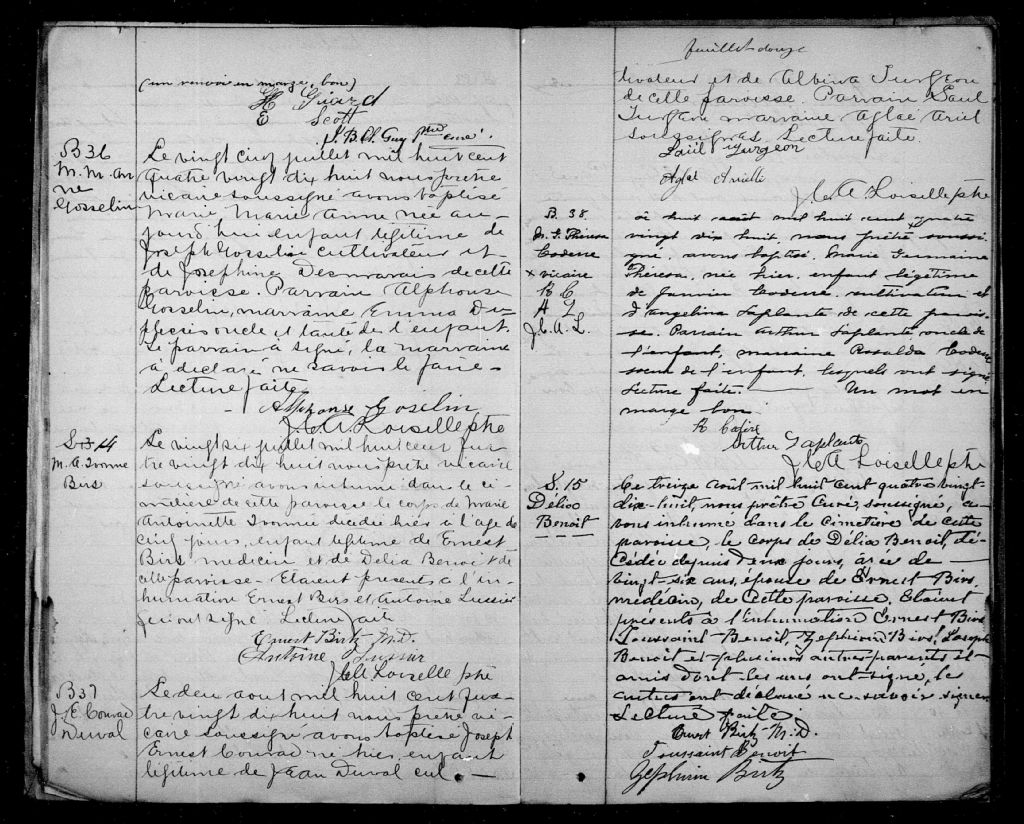 (un renvoi en marge, bon)
H Guard
E Scott
J. B. Ch. Guy ptre curé.
B 36
M. M. An
ne
Gosselin
Le vingt cinq juillet mil huit cent
quatre vingt dix huit nous prêtre
vicaire soussigné avons baptisé
Marie Marie Anne née au-
jourd'hui enfant légitime de
Joseph Gosselin cultivateur et
de Josephine Desmarais de cette
paroisse. Parrain Alphonse
Gosselin, marraine Emma Du-
plessis oncle et tante de l'enfant.
Le parrain a signé, la marraine
a déclaré ne savoir le faire -
Lecture faite
Alphonse Goselin
J. C. A Loiselle ptre
S 14
M. A. Ivonne
Birs
Le vingt six juillet mil huit cent qua
tre vingt dix huit nous prêtre vicaire
soussigné avons inhumé dans le ci-
metière de cette paroisse le corps de Marie
Antoinette Ivonne décédée hier à l'age de
cinq jours, enfant légitime de Ernest
Birs médecin et de Delia Benoit de
cette paroisse - Etaient présents à l'in-
humation Ernest Birs et Antoine Lussier
qui ont signé. Lecture faite
Ernest Birtz M.D.
Antoine Lussier
J. C. A Loiselle ptre
B 37
J. E. Conrad
Duval
Le deux aout mil huit cent qua-
tre vingt dix huit nous prêtre vi-
caire soussigné avons baptisé Joseph
Ernest Conrad né hier, enfant
légitime de Jean Duval cul -
feuillet douze
tivateur et de Albina Turgeon
de cette paroisse. Parrain Paul
Turgeon marraine Aglaé Ariel
soussignés Lecture faite.
Paül Turgeon
Aglaé
J. C. A Loiselle ptre
B. 38
M. G. Théresa
Coderre
x vicaire
R C
A L
J. C. A. L.
Le huit août mil huit cent quatre
vingt dix huit, nous prêtre x soussi
gné, avons baptisé Marie Germaine
Théresa, née hier, enfant légitime
de Janvier Coderre cultivateur et
d'Angelina Laplante de cette parois-
se. Parrain Arthur Laplante, oncle de
l'enfant, marraine Rosalda Coderre
soeur de l'enfant, lesquels ont signé
Lecture faite. Un mot en
marge bon
Arthur Laplante
J. C. A Loiselle ptre
S. 15
Délia
Benoit
Le treize août mil huit cent quatre vingt-
dix-huit, nous prêtre Curé, soussigné, a-
vons inhumé dans le Cimetière de cette
paroisse, le corps de Délia Benoit, dé-
cédée depuis deux jours, âgée de
vingt-six ans, épouse de Ernest Birs,
médecin, de Cette paroisse. Etaient
présents à l'inhumation Ernest Birs
Toussaint Benoit, Zephirin Birs, Joseph
Benoit et plusieurs autres parents et
amis dont les uns ont signé, les
autres ont déclaré ne savoir signer
Lecture faite.
Ernest Birtz M.D.
Toussaint Benoit
Zephirin Birtz